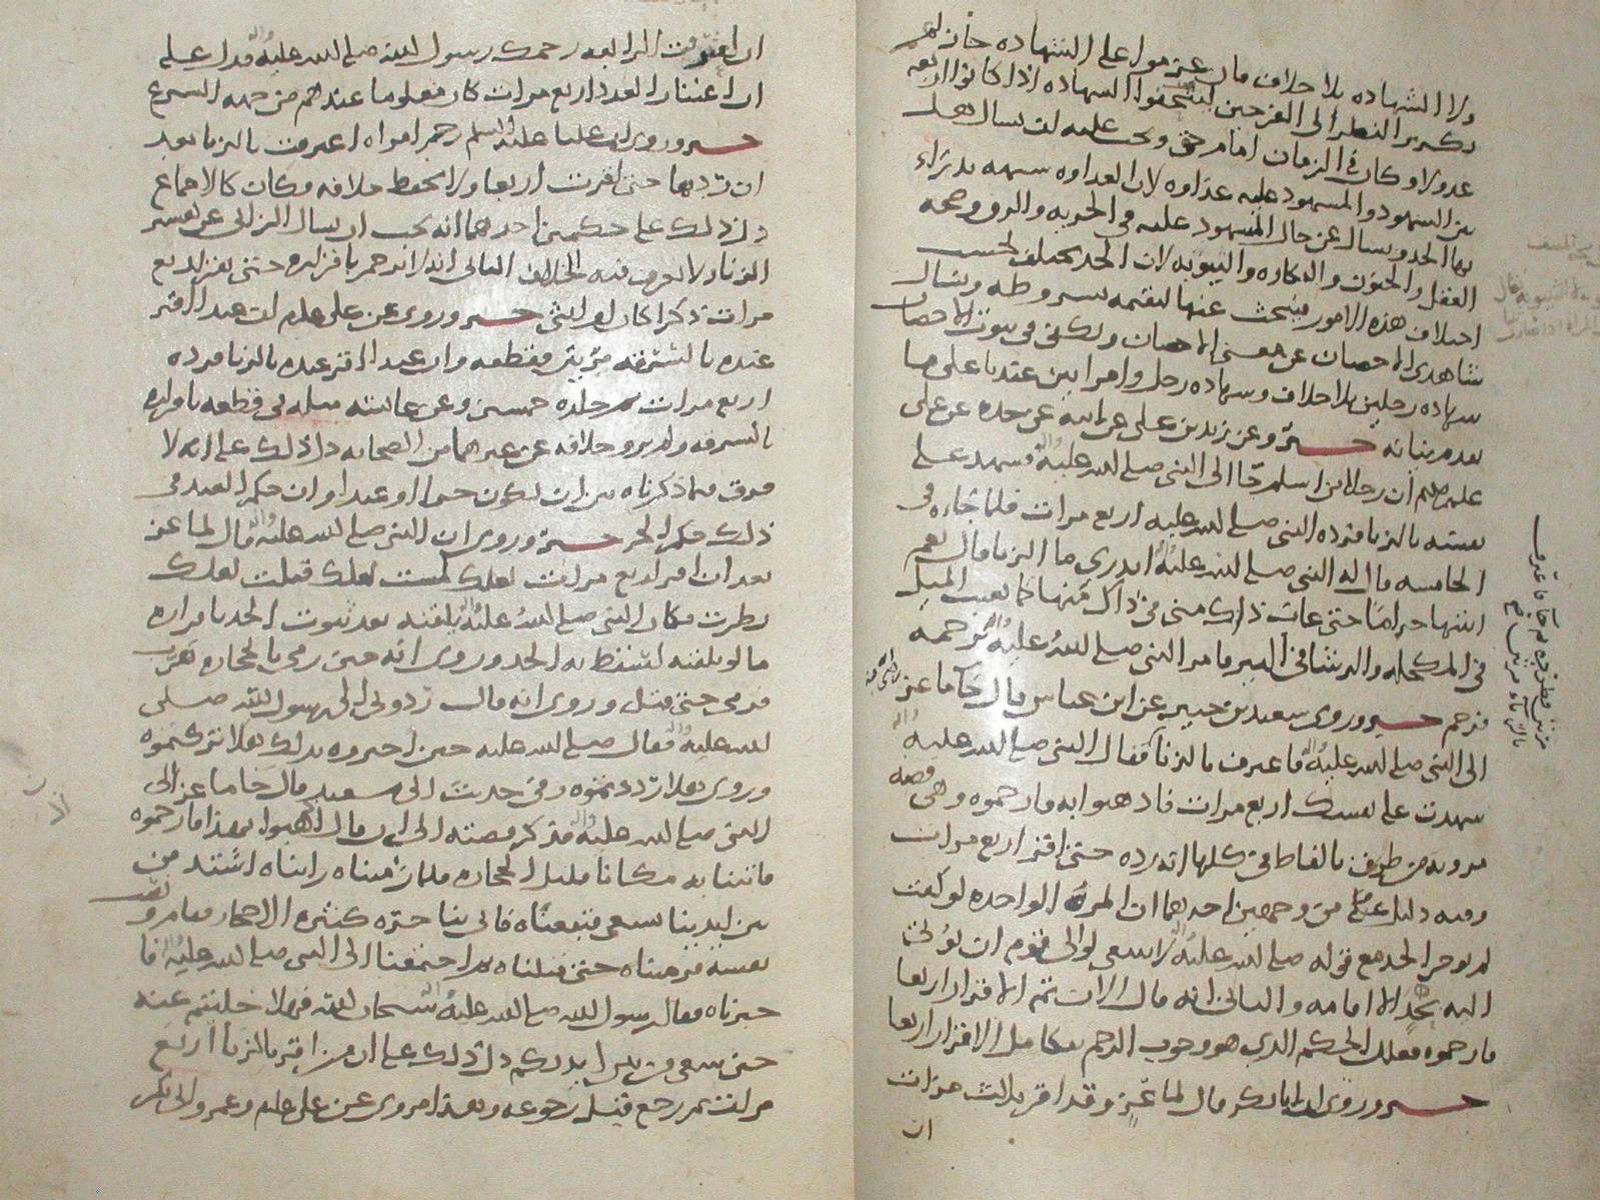 ولا الشهاده بلا خلاف فان عزموا على الشهاده جاز لهم
تكرير النظر الى الفرجين ليتحققوا الشهاده اذا كانوا اربعه
عدولا وكان في الزمان امام حق ويجب عليه ان يسال هل
بين الشهود والمشهود عليه عداوه لان العداوه شبهه يدرا
بها الحد ويسال عن حال المشهود عليه في الحريه والرق وصحه
العقل والجنون والبكاره والثيوبه لان الحد يختلف بحسب
اختلاف هذه الامور فيبحث عنها ليقيمه بشروطه ويسال
شاهدي الاحصان عن معنى الاحصان ويكفي في ثبوت الاحصان
شهاده رجلين بلا خلاف وشهاده رجل وامراتين عندنا على ما
تقدم بيانه خبر وعن زيد بن علي عن ابيه عن جده عن علي
عليهم ان رجلا من اسلم جا الى النبي صلى الله عليه واله فشهد على
نفسه بالزنا فرده النبي صلى الله عليه اربع مرات فلما جاه في
الخامسه قال له النبي صلى الله عليه واله اتدري ما الزنا قال نعم
اتيتها حراما حتى غاب ذاك مني في ذاك منها كما يغيب الميل
في المكحله والرشا في البير فامر النبي صلى الله عليه واله برجمه
فرجم خبر وروى سعيد بن جبير عن ابن عباس قال جا ماعز
الى النبي صلى الله عليه واله فاعترف بالزنا فقال النبي صلى الله عليه واله
شهدت على نفسك اربع مرات فاذهبوا به فارجموه وهي قصه
مرويه من طرق بالفاظ في كلها انه رده حتى اقر اربع مرات
وفيه دليل على من وجهين احدهما ان المره الواحده لو كفت
لم يوخر الحد مع قوله صلى الله عليه واله لا ينبغي لوالي قوم ان يوتى
اليه بحد الا اقامه والثاني انه قال الان تم الاقرار اربعا
فارجموه فعلق الحكم الذي هو وجوب الرجم بتكامل الاقرار اربعا
خبر وروي ان ابا بكر قال لماعز وقد اقر ثلاث مرات
ان
ان اعترفت الرابعه رجمك رسول الله صلى الله عليه واله فدل على
ان اعتبار العدد اربع مرات كان معلوما عندهم من جهه الشرع
خبر وروي ان عليا عليه السلم رجم امراه اعترفت بالزنا بعد
ان ردها حتى اقرت اربعا ولا يحفظ خلافه فكان كالاجماع
دل ذلك على حكمين احدهما انه يجب ان يسال الزاني عن تفسير
الزنا ولا نعرف فيه الخلاف الثاني انه لا يرجم باقراره حتى يقر اربع
مرات ذكرا كان او انثى خبر وروي عن علي علم ان عبدا اقر
عنده بالسرقه مرتين فقطعه وان عبدا اقر عنده بالزنا فرده
اربع مرات ثم جلده خمسين وعن عائشه مثله في قطعه باقراره
بالسرقه ولم يرو خلافه عن غيرهما من الصحابه دل ذلك على انه لا
فرق فيما ذكرناه بين ان يكون حرا او عبدا وان حكم العبد في
ذلك حكم الحر خبر وروي ان النبي صلى الله عليه واله قال لماعز
بعد ان اقر اربع مرات لعلك لمست لعلك قبلت لعلك
نظرت فكان النبي صلى الله عليه واله يلقنه بعد ثبوت الحد باقراره
ما لو تلقنه لسقط به الحد وروي انه حين رمي بالحجاره هرب
فرمي حتى قتل وروي انه قال ردوني الى رسول الله صلى
الله عليه واله فقال صلى الله عليه حين اخبروه بذلك هلا تركتموه
وروي هلا رددتموه وفي حديث ابي سعيد قال جا ماعز الى
النبي صلى الله عليه واله فذكر قصته الى ان قال اذهبوا بهذا فارجموه
فاتينا به مكانا قليل الحجاره فلما رميناه رايناه اشتد من
بين ايدينا يسعى فتبعناه فاتى بنا حره كثيره الاحجار فقام ونصب
نفسه فرميناه حتى قتلناه ثم اجتمعنا الى النبي صلى الله عليه واله فا
خبرناه فقال رسول الله صلى الله عليه واله سبحان الله فهلا خليتم عنه
حين سعى من بين ايديكم دل ذلك على ان من اقر بالزنا اربع
مرات ثم رجع قبل رجوعه وبهذا مروي عن علي علم وعمر وابي بكر